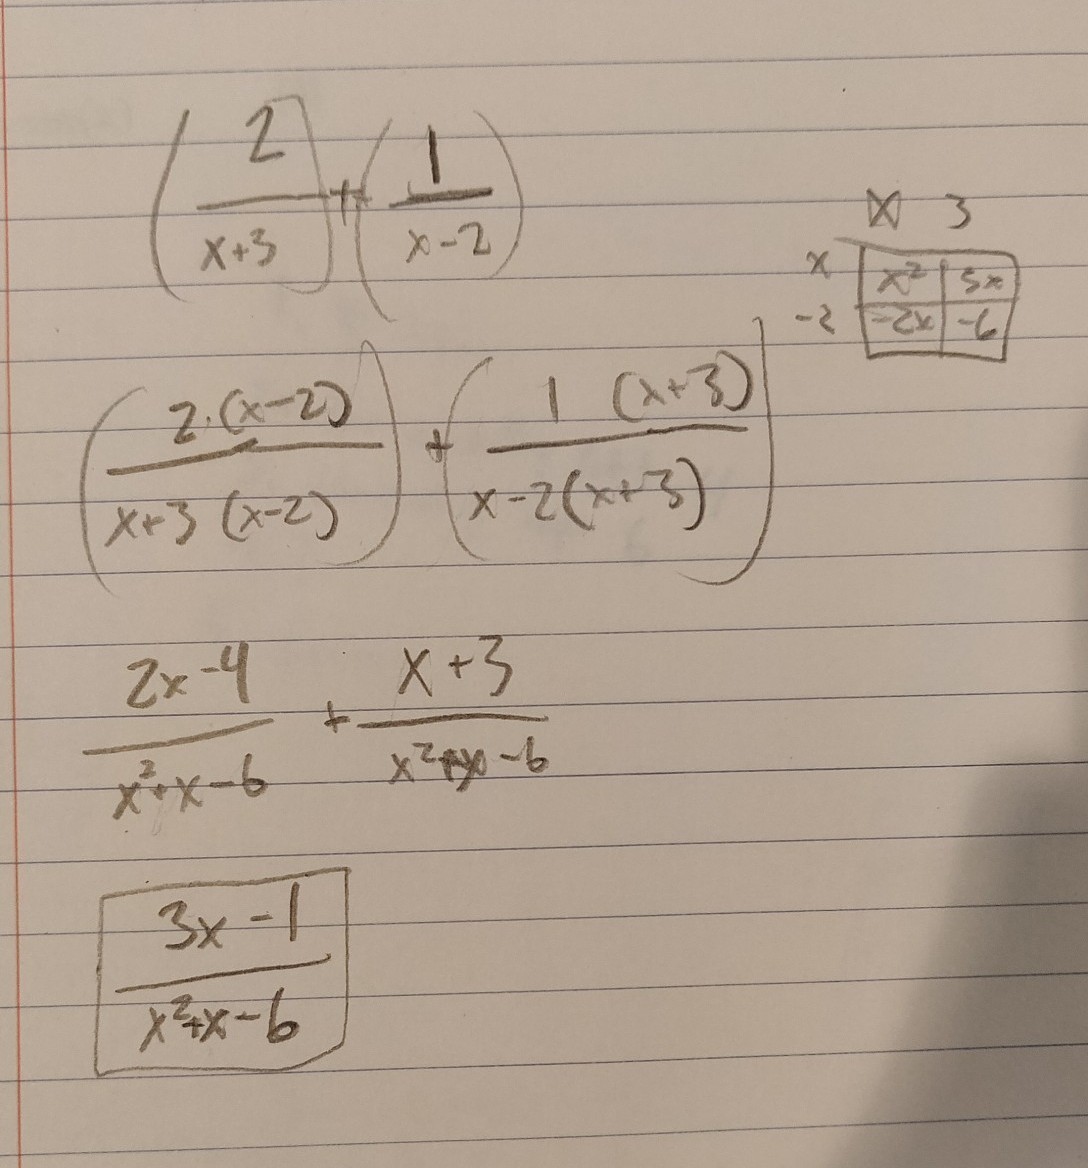 (2/(x+3)) + (1/(x-2))
x 3
x x² 3x
-2 -2x -6
(2·(x-2)/x+3(x-2)) + (1 (x+3)/x-2(x+3))
2x-4/x²+x-6 + x+3/x²+x-6
3x-1/x²+x-6